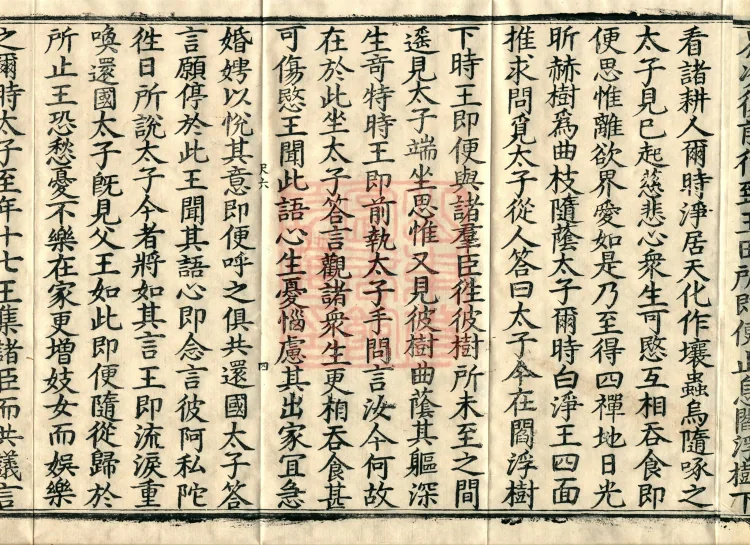 次往前行至王田所即便止息閻浮樹下
看諸耕人爾時淨居天化作壤蟲烏隨啄之
太子見已起慈悲心衆生可愍互相吞食即
便思惟離欲界愛如是乃至得四禪地日光
昕赫樹爲曲枝隨蔭太子爾時白淨王四面
推求問覓太子從人答曰太子今在閻浮樹
下時王即便與諸羣臣徃彼樹所未至之間
遥見太子端坐思惟又見彼樹曲蔭其軀深
生奇特時王即前執太子手問言汝今何故
在於此坐太子答言觀諸衆生更相吞食甚
可傷愍王聞此語心生憂惱慮其出家宜急
尺六 四
婚娉以悅其意即便呼之俱共還國太子答
言願停於此王聞其語心即念言彼阿私陀
徃日所說太子今者將如其言王即流淚重
喚還國太子旣見父王如此即便隨從歸於
所止王恐愁憂不樂在家更增妓女而娛樂
之爾時太子至年十七王集諸臣而共議言